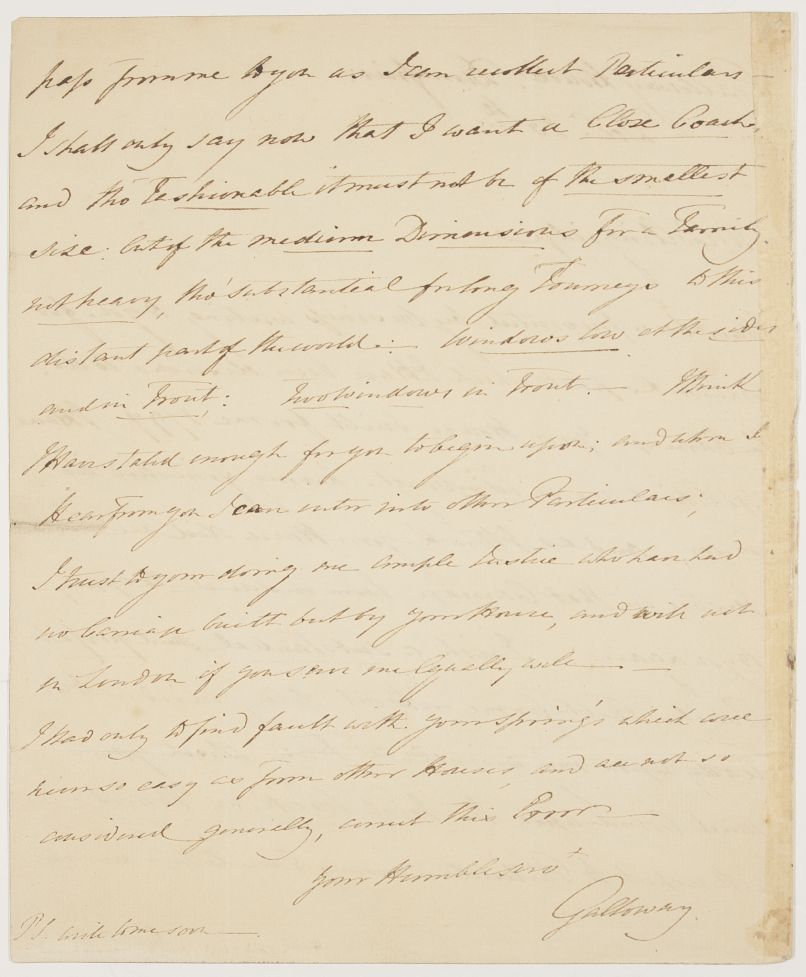 pass from me to you as I can recollect Particulars —
I shall only say now that I want a Close Coach,
and tho' Fashionable it must not be of the smallest
size: but of the medium Dimensions for a Family.
not heavy, tho' substantial for long Journeys to this
distant part of the world: Windows low at the sides
and in Front: Two Windows in Front. — I think
I Have stated enough for you to begin upon; and when I
Hear from you I can enter into other Particulars;
I trust to your doing me ample Justice who have had
no Carriage built but by your House, and will not
in London if you serve me Equally well —
I Had only to find fault with your Springs which were
never so easy as from other Houses, and are not so
considered generally, correct this Error —
Your Humble Servt
Galloway.
P.S. write to me soon —.